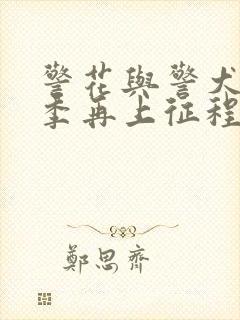 警花與警犬
季再上征程
鄭思齊